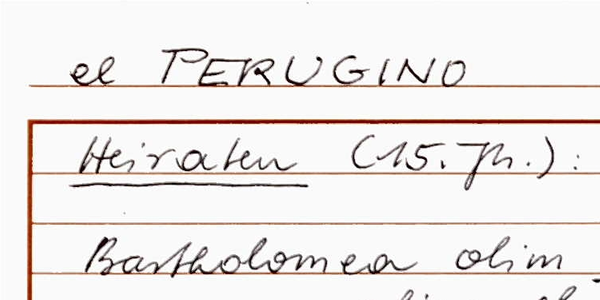 el PERUGINO
Heiraten (15. Jh.):
Bartholomea olim